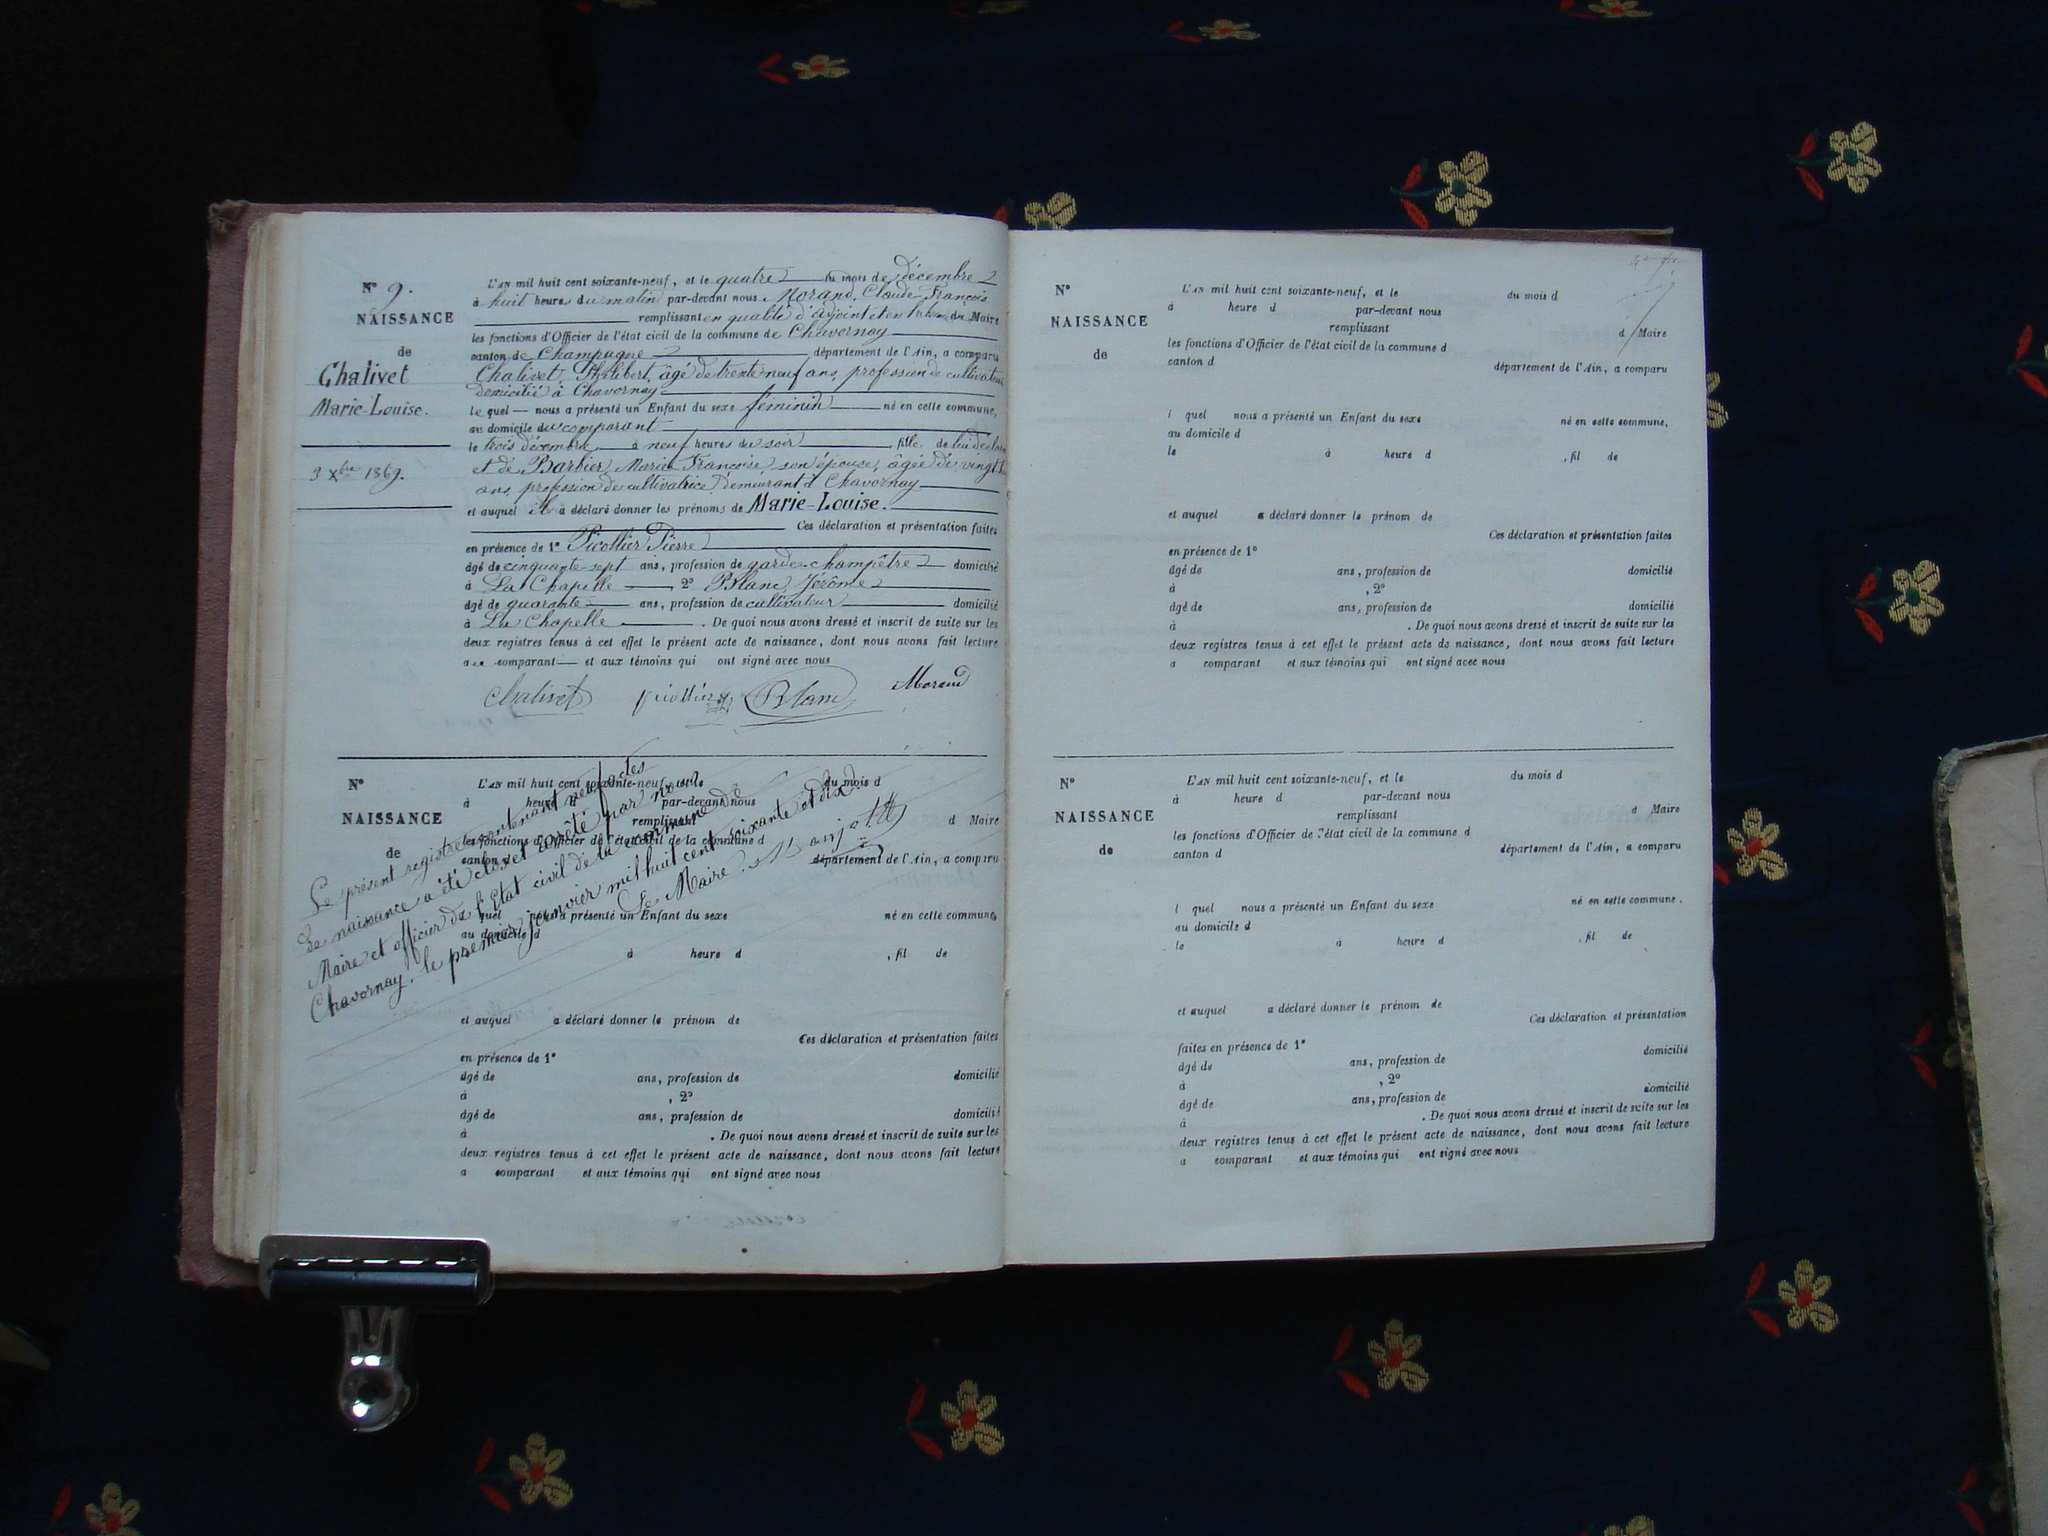 N° 9.
NAISSANCE
de
Chalivet
Marie-Louise.
3 Xbre 1869.
L'AN mil huit cent soixante-neuf, et le quatre du mois de décembre
à huit heures du matin par-devant nous Morand, Claude François
remplissant en qualité d'adjoint et en du Maire
les fonctions d'Officier de l'état civil de la commune de Chavornay
canton de Champagne département de l'Ain, a comparu
Chalivet, Philibert, âgé de trente neuf ans, profession de cultivateur
domicilié à Chavornay
le quel nous a présenté un Enfant du sexe féminin né en cette commune,
au domicile du comparant
le trois décembre à neuf heures du soir fille de lui déclarant
et de Barbier, Marie Françoise, son épouse, âgée de vingt
ans, profession de cultivatrice demeurant à Chavornay
et auquel il a déclaré donner les prénoms de Marie-Louise.
Ces déclaration et présentation faites
en présence de 1° Picollier Pierre
âgé de cinquante-sept ans, profession de garde-champêtre domicilié
à La Chapelle , 2° Blanc, Jérôme
âgé de quarante ans, profession de cultivateur domicilié
à La Chapelle . De quoi nous avons dressé et inscrit de suite sur les
deux registres tenus à cet effet le présent acte de naissance, dont nous avons fait lecture
au comparant et aux témoins qui ont signé avec nous
Chalivet Picollier Blanc Morand
N°
NAISSANCE
de
L'AN mil huit cent soixante-neuf, et le du mois d
à heure d par-devant nous
remplissant d Maire
les fonctions d'Officier de l'état civil de la commune d
canton d département de l'Ain, a comparu
l quel nous a présenté un Enfant du sexe né en cette commune,
au domicile d
à heure d , fil de
et auquel a déclaré donner le prénom de
Ces déclaration et présentation faites
en présence de 1°
âgé de ans, profession de domicilié
à , 2°
âgé de ans, profession de domicilié
à . De quoi nous avons dressé et inscrit de suite sur les
deux registres tenus à cet effet le présent acte de naissance, dont nous avons fait lecture
a comparant et aux témoins qui ont signé avec nous
Le présent registre contenant neuf actes
de naissance a été clos et arrêté par nous
Maire et officier de l'Etat civil de la commune de
Chavornay, le premier janvier mil huit cent soixante et dix
Le Maire.
N°
NAISSANCE
de
L'AN mil huit cent soixante-neuf, et le du mois d
à heure d par-devant nous
remplissant d Maire
les fonctions d'Officier de l'état civil de la commune d
canton d département de l'Ain, a comparu
l quel nous a présenté un Enfant du sexe né en cette commune,
au domicile d
le à heure d , fil de
et auquel a déclaré donner le prénom de
Ces déclaration et présentation faites
en présence de 1°
âgé de ans, profession de domicilié
à , 2°
âgé de ans, profession de domicilié
à . De quoi nous avons dressé et inscrit de suite sur les
deux registres tenus à cet effet le présent acte de naissance, dont nous avons fait lecture
a comparant et aux témoins qui ont signé avec nous
N°
NAISSANCE
de
L'AN mil huit cent soixante-neuf, et le du mois d
à heure d par-devant nous
remplissant d Maire
les fonctions d'Officier de l'état civil de la commune d
canton d département de l'Ain, a comparu
l quel nous a présenté un Enfant du sexe né en cette commune,
au domicile d
le à heure d , fil de
et auquel a déclaré donner le prénom de
Ces déclaration et présentation
faites en présence de 1°
âgé de ans, profession de domicilié
à , 2°
âgé de ans, profession de domicilié
à . De quoi nous avons dressé et inscrit de suite sur les
deux registres tenus à cet effet le présent acte de naissance, dont nous avons fait lecture
a comparant et aux témoins qui ont signé avec nous